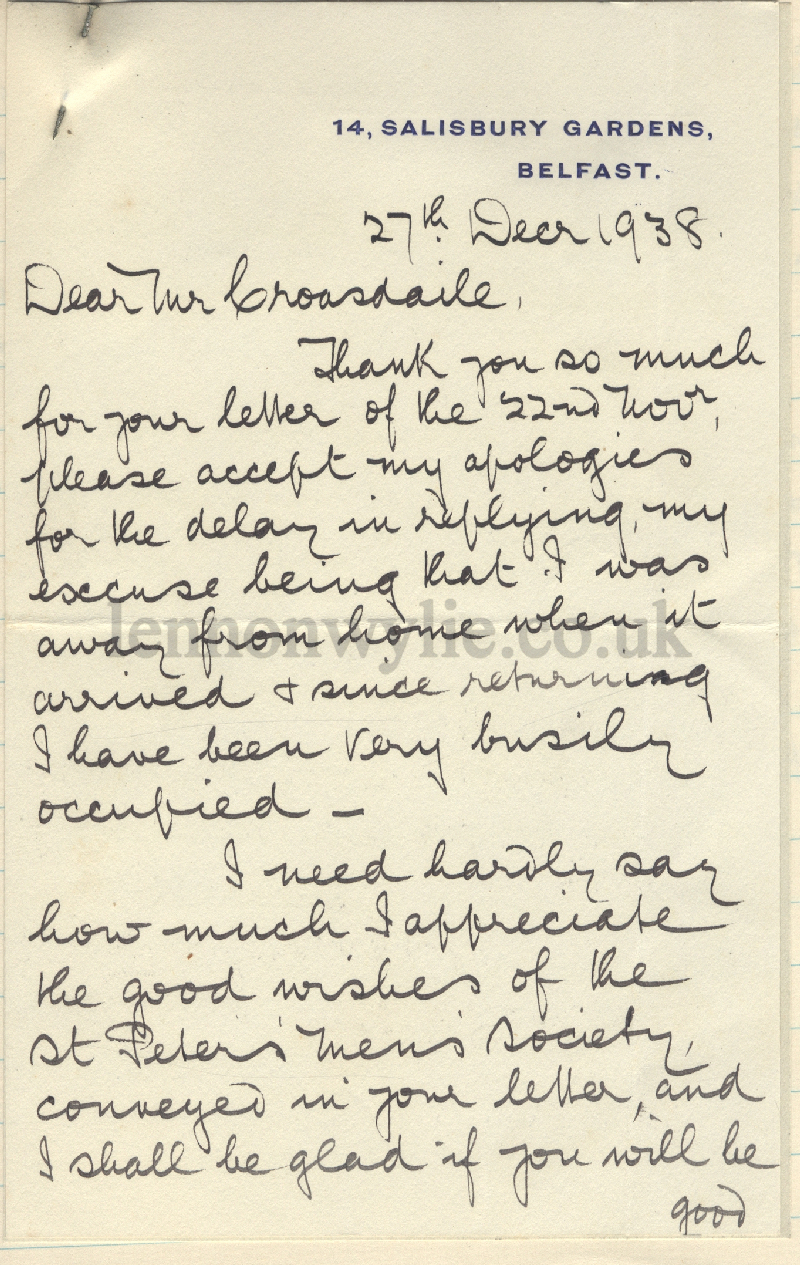 14, SALISBURY GARDENS,
BELFAST.
27th Decr 1938.
Dear Mr Croasdaile,
Thank you so much
for your letter of the 22nd Novr,
please accept my apologies
for the delay in replying, my
excuse being that I was
away from home when it
arrived & since returning
I have been very busily
occupied –
I need hardly say
how much I appreciate
the good wishes of the
St Peter's Men's Society,
conveyed in your letter, and
I shall be glad if you will be
good
lennonwylie.co.uk